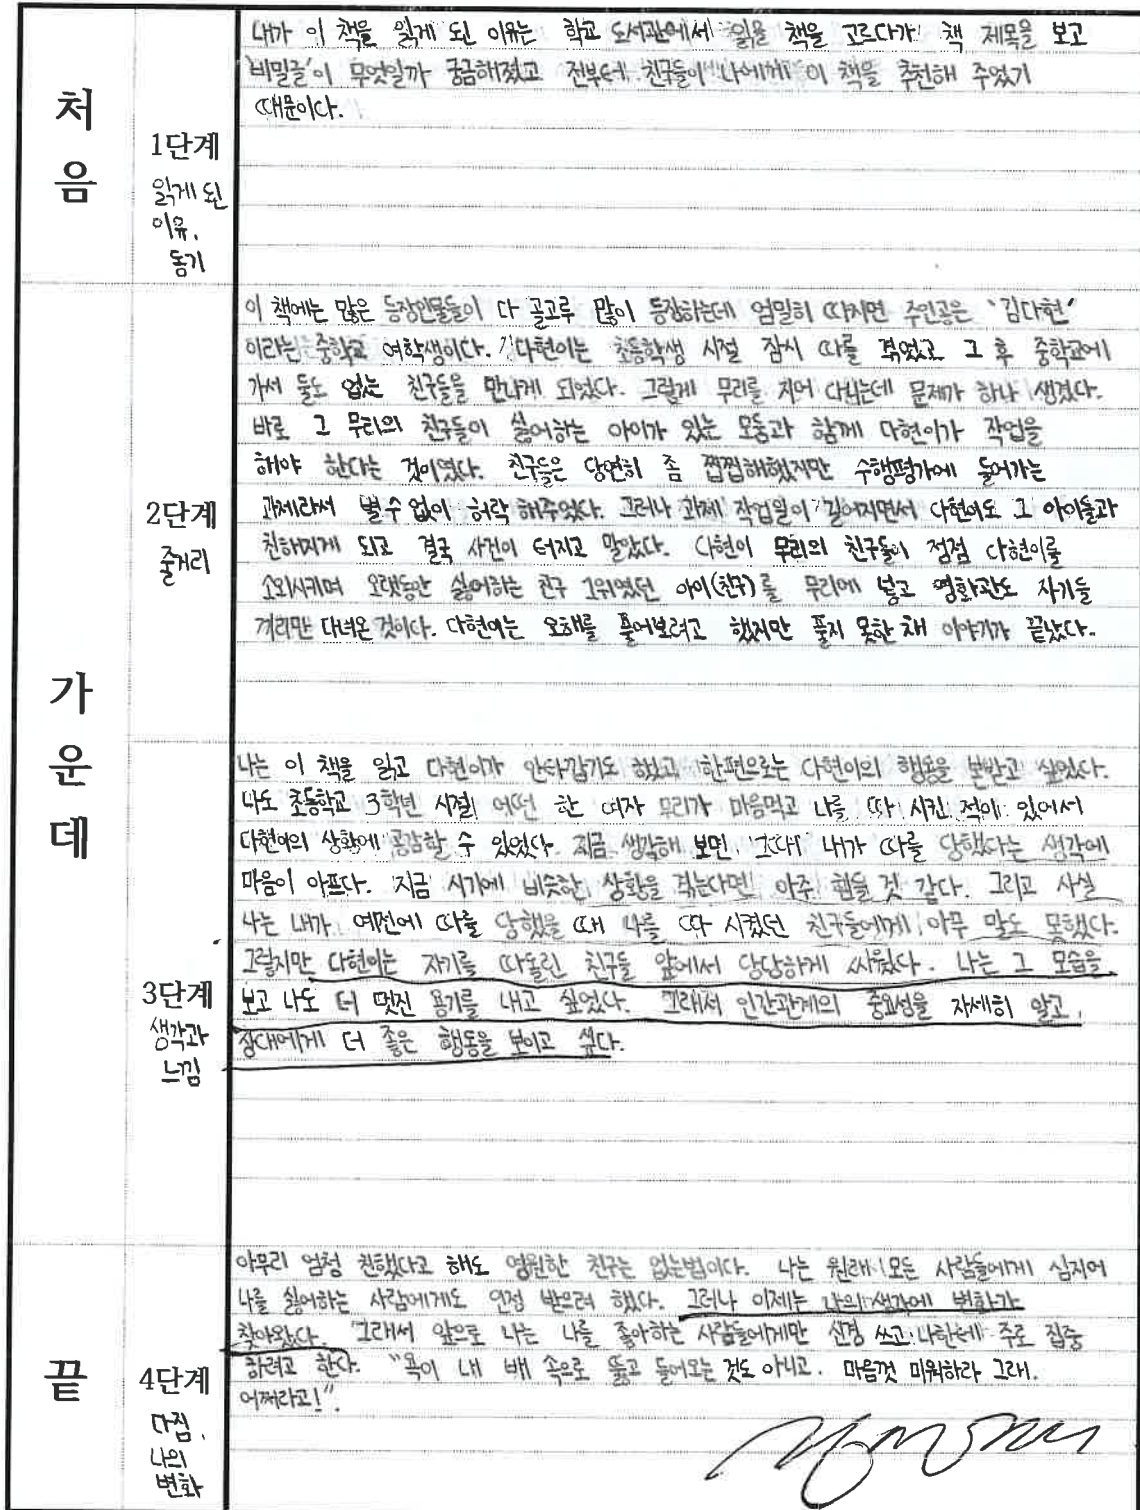 처음
1단계
읽게 된
이유,
동기
내가 이 책을 읽게 된 이유는 학교 도서관에서 읽을 책을 고르다가 책 제목을 보고
'비밀글'이 무엇일까 궁금해졌고 전부터 친구들이 나에게 이 책을 추천해 주었기
때문이다.
가운데
2단계
줄거리
이 책에는 많은 등장인물들이 다 골고루 많이 등장하는데 엄밀히 따지면 주인공은 '김다현'
이라는 중학교 여학생이다. 김다현이는 초등학생 시절 잠시 따를 겪었고 그 후 중학교에
가서 둘도 없는 친구들을 만나게 되었다. 그렇게 무리를 지어 다니는데 문제가 하나 생겼다.
바로 그 무리의 친구들이 싫어하는 아이가 있는 모둠과 함께 다현이가 작업을
해야 한다는 것이였다. 친구들은 당연히 좀 찝찝해했지만 수행평가에 들어가는
과제라서 별수 없이 허락 해주었다. 그러나 과제 작업일이 길어지면서 다현이도 그 아이들과
친해지게 되고 결국 사건이 터지고 말았다. 다현이 무리의 친구들이 점점 다현이를
소외시키며 오랫동안 싫어하는 친구 1위였던 아이(친구)를 무리에 넣고 영화관도 자기들
끼리만 다녀온 것이다. 다현이는 오해를 풀어보려고 했지만 풀지 못한 채 이야기가 끝났다.
3단계
생각과
느낌
나는 이 책을 읽고 다현이가 안타깝기도 했고 한편으로는 다현이의 행동을 본받고 싶었다.
나도 초등학교 3학년 시절 어떤 한 여자 무리가 마음먹고 나를 따 시킨 적이 있어서
다현이의 상황에 공감할 수 있었다. 지금 생각해 보면 그때 내가 따를 당했다는 생각에
마음이 아프다. 지금 시기에 비슷한 상황을 겪는다면 아주 힘들 것 같다. 그리고 사실
나는 내가 예전에 따를 당했을 때 나를 따 시켰던 친구들에게 아무 말도 못했다.
그렇지만 다현이는 자기를 따돌린 친구들 앞에서 당당하게 싸웠다. 나는 그 모습을
보고 나도 더 멋진 용기를 내고 싶었다. 그래서 인간관계의 중요성을 자세히 알고,
상대에게 더 좋은 행동을 보이고 싶다.
끝
4단계
다짐,
나의
변화
아무리 엄청 친했다고 해도 영원한 친구는 없는법이다. 나는 원래 모든 사람들에게 심지어
나를 싫어하는 사람에게도 인정 받으려 했다. 그러나 이제는 나의 생각에 변화가
찾아왔다. 그래서 앞으로 나는 나를 좋아하는 사람들에게만 신경 쓰고 나한테 주로 집중
하려고 한다. "욕이 내 배 속으로 뚫고 들어오는 것도 아니고. 마음껏 미워하라 그래.
어쩌라고!".